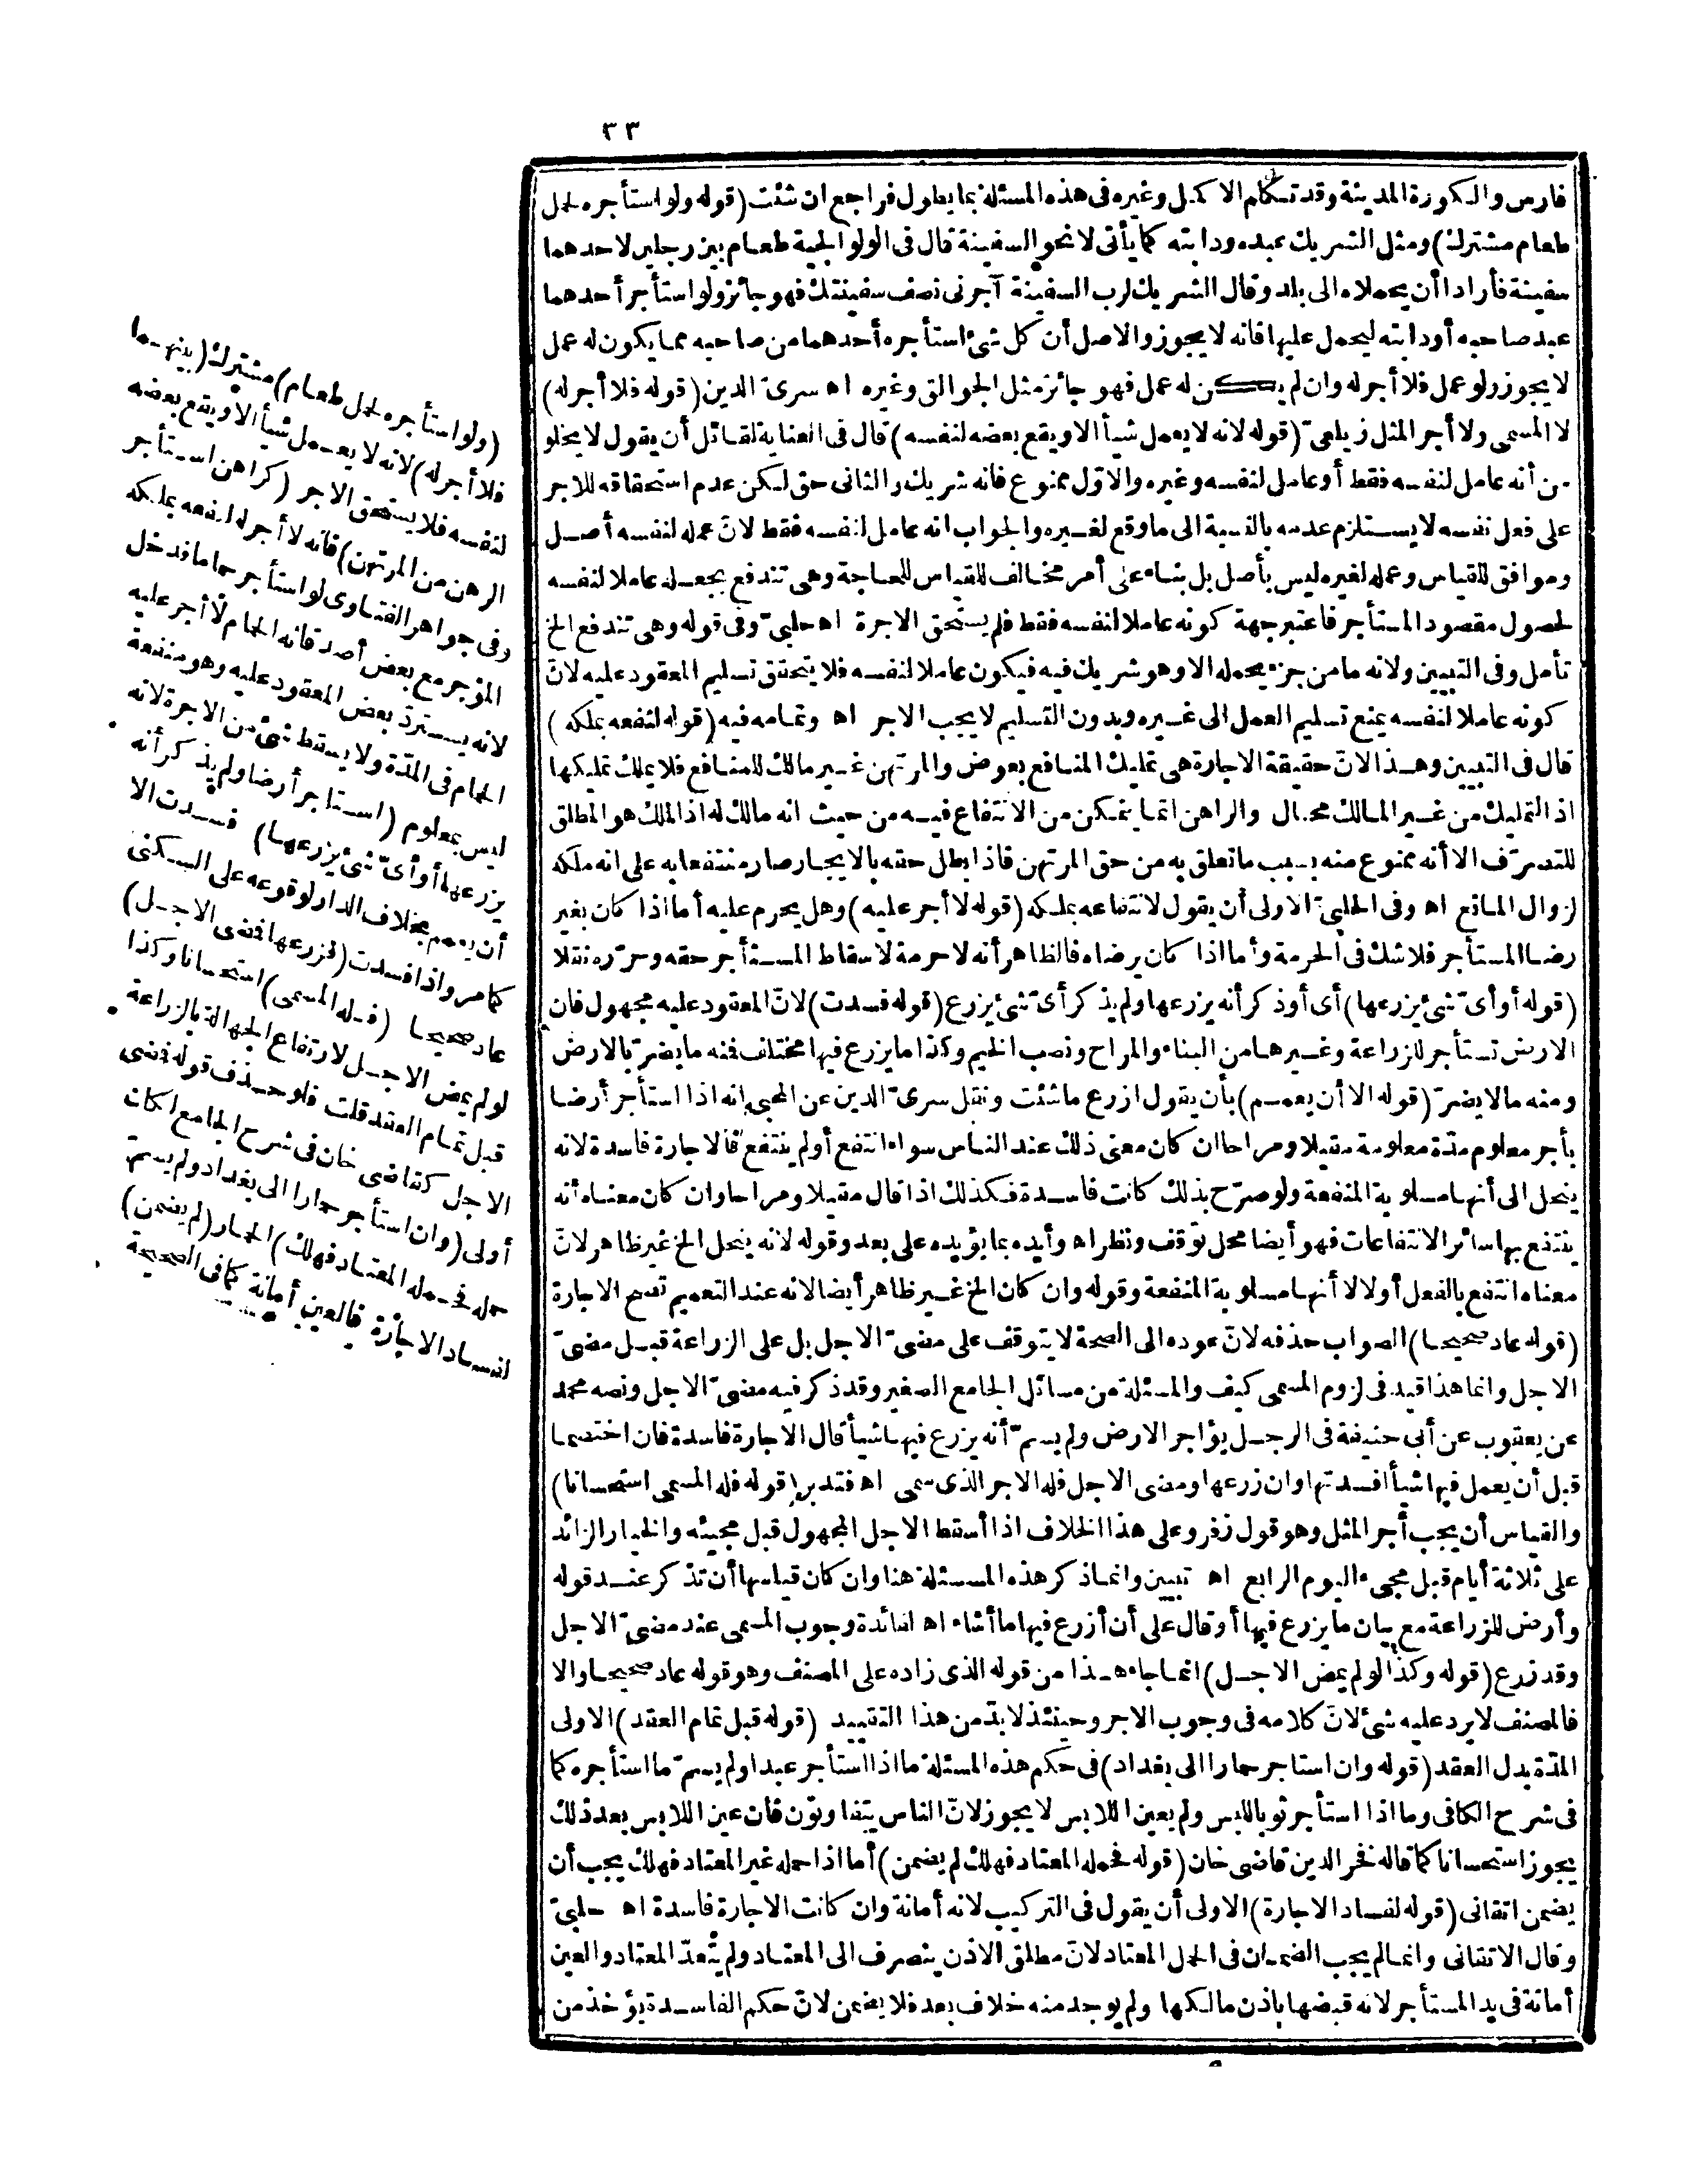 ٣٣
فارس والكورة المدينة وقد تكلم الاكمل وغيره فى هذه المسئلة بما يطول فراجع ان شئت (قوله ولو استأجره لحمل
طعام مشترك) ومثل الشريك عبده ودابته كما يأتى لا نحو السفينة قال فى الولوالجية طعام بين رجلين لاحدهما
سفينة فأرادا أن يحملاه الى بلد وقال الشريك لرب السفينة آجرنى نصف سفينتك فهو جائز ولو استأجر أحدهما
عبد صاحبه أو دابته ليحمل عليها فانه لا يجوز والاصل أن كل شئ استأجره أحدهما من صاحبه مما يكون له عمل
لا يجوز ولو عمل فلا أجر له وان لم يكن له عمل فهو جائز مثل الجوالق وغيره اه سرىّ الدين (قوله فلا أجر له)
لا المسمى ولا أجر المثل زيلعىّ (قوله لانه لا يعمل شيأ الا ويقع بعضه لنفسه) قال فى العناية لقائل أن يقول لا يخلو
من أنه عامل لنفسه فقط أو عامل لنفسه وغيره والاوّل ممنوع فانه شريك والثانى حق لكن عدم استحقاقه للاجر
على فعل نفسه لا يستلزم عدمه بالنسبة الى ما وقع لغيره والجواب انه عامل لنفسه فقط لانّ عمله لنفسه أصل
وموافق للقياس وعمله لغيره ليس بأصل بل بناء على أمر مخالف للقياس للحاجة وهى تندفع بجعله عاملا لنفسه
لحصول مقصود المستأجر فاعتبر جهة كونه عاملا لنفسه فقط فلم يستحق الاجرة اه حلبىّ وفى قوله وهى تندفع الخ
تأمل وفى التبيين ولانه ما من جزء يحمله الا وهو شريك فيه فيكون عاملا لنفسه فلا يتحقق تسليم المعقود عليه لانّ
كونه عاملا لنفسه يمنع تسليم العمل الى غيره وبدون التسليم لا يجب الاجر اه وتمامه فيه (قوله لنفعه بملكه)
قال فى التبيين وهذا لانّ حقيقة الاجارة هى تمليك المنافع بعوض والمرتهن غير مالك للمنافع فلا يملك تمليكها
اذ التمليك من غير المالك محال والراهن انما يتمكن من الانتفاع فيه من حيث انه مالك له اذ الملك هو المطلق
للتصرّف الا أنه ممنوع منه بسبب ما تعلق به من حق المرتهن فاذا بطل حقه بالايجار صار منتفعا به على انه ملكه
لزوال المانع اه وفى الحلبىّ الاولى أن يقول لانتفاعه بملكه (قوله لا أجر عليه) وهل يحرم عليه أما اذا كان بغير
رضا المستأجر فلا شك فى الحرمة وأما اذا كان برضاه فالظاهر أنه لا حرمة لاسقاط المستأجر حقه وحرّره نقلا
(قوله أو أىّ شئ يزرعها) أى أو ذكر أنه يزرعها ولم يذكر أىّ شئ يزرع (قوله فسدت) لانّ المعقود عليه مجهول فان
الارض تستأجر للزراعة وغيرها من البناء والمراح ونصب الخيم وكذا ما يزرع فيها مختلف فمنه ما يضرّ بالارض
ومنه ما لا يضرّ (قوله الا أن يعمم) بأن يقول ازرع ما شئت ونقل سرىّ الدين عن المجتبى انه اذا استأجر أرضا
بأجر معلوم مدّة معلومة مقيلا ومراحا ان كان معنى ذلك عند الناس سواء انتفع أو لم ينتفع فالاجارة فاسدة لانه
ينحل الى أنها مسلوبة المنفعة ولو صرّح بذلك كانت فاسدة فكذلك اذا قال مقيلا ومراحا وان كان معناه أنه
ينتفع بها سائر الانتفاعات فهو أيضا محل توّقف ونظر اه وأيده بما يؤيده على بعد وقوله لانه ينحل الخ غير ظاهر لانّ
معناه انتفع بالفعل أولا لا أنها مسلوبة المنفعة وقوله وان كان الخ غير ظاهر أيضا لانه عند التعميم تصح الاجارة
(قوله عاد صحيحا) الصواب حذفه لانّ عوده الى الصحة لا يتوقف على مضىّ الاجل بل على الزراعة قبل مضىّ
الاجل وانما هذا قيد فى لزوم المسمى كيف والمسئلة من مسائل الجامع الصغير وقد ذكر فيه مضىّ الاجل ونصه محمد
عن يعقوب عن أبى حنيفة فى الرجل يؤاجر الارض ولم يسمّ أنه يزرع فيها شيأ قال الاجارة فاسدة فان اختصما
قبل أن يعمل فيها شيأ أفسدتها وان زرعها ومضى الاجل فله الاجر الذى سمى اه فتدبر (قوله فله المسمى استحسانا)
والقياس أن يجب أجر المثل وهو قول زفر وعلى هذا الخلاف اذا أسقط الاجل المجهول قبل مجيئه والخيار الزائد
على ثلاثة أيام قبل مجىء اليوم الرابع اه تبيين وانما ذكر هذه المسئلة هنا وان كان قياسها أن تذكر عند قوله
وأرض للزراعة مع بيان ما يزرع فيها أو قال على أن أزرع فيها ما أشاء اه لفائدة وجوب المسمى عند مضىّ الاجل
وقد زرع (قوله وكذا لو لم يمض الاجل) انما جاء هذا من قوله الذى زاده على المصنف وهو قوله عاد صحيحا والا
فالمصنف لا يرد عليه شئ لانّ كلامه فى وجوب الاجر وحينئذ لا بدّ من هذا التقييد (قوله قبل تمام العقد) الاولى
المدّة بدل العقد (قوله وان استأجر حمارا الى بغداد) فى حكم هذه المسئلة ما اذا استأجر عبدا ولم يسمّ ما استأجره كما
فى شرح الكافى وما اذا استأجر ثوبا للبس ولم يعين اللابس لا يجوز لانّ الناس يتفاوتون فان عين اللابس بعد ذلك
يجوز استحسانا كما قاله فخر الدين قاضى خان (قوله فحمله المعتاد فهلك لم يضمن) أما اذا حمله غير المعتاد فهلك يجب أن
يضمن اتقانى (قوله لفساد الاجارة) الاولى أن يقول فى التركيب لانه أمانة وان كانت الاجارة فاسدة اه حلبىّ
وقال الاتقانى وانما لم يجب الضمان فى الحمل المعتاد لانّ مطلق الاذن ينصرف الى المعتاد ولم يتعدّ المعتاد والعين
أمانة فى يد المستأجر لانه قبضها باذن مالكها ولم يوجد منه خلاف بعد فلا يضمن لانّ حكم الفاسدة يؤخذ من
(ولو استأجره لحمل طعام) مشترك (بينهما
فلا أجر له) لانه لا يعمل شيأ الا ويقع بعضه
لنفسه فلا يستحق الاجر (كراهن استأجر
الرهن من المرتهن) فانه لا أجر له لنفعه بملكه
وفى جواهر الفتاوى لو استأجر حماما فدخل
المؤجر مع بعض أصدقائه الحمام لا أجر عليه
لانه يستردّ بعض المعقود عليه وهو منفعة
الحمام فى المدّة ولا يسقط شئ من الاجرة لانه
ليس بمعلوم (استأجر أرضا ولم يذكر أنه
يزرعها أو أىّ شئ يزرعها) فسدت الا
أن يعمم بخلاف الدار لوقوعه على السكنى
كما مر واذا فسدت (فزرعها فمضى الاجل)
عاد صحيحا (فله المسمى) استحسانا وكذا
لو لم يمض الاجل لارتفاع الجهالة بالزراعة
قبل تمام العقد قلت فلو حذف قوله فمضى
الاجل كقاضى خان فى شرح الجامع لكان
أولى (وان استأجر حمارا الى بغداد ولم يسم
حمله فحمله المعتاد فهلك) الحمار (لم يضمن)
لفساد الاجارة فالعين أمانة كما فى الصحيحة